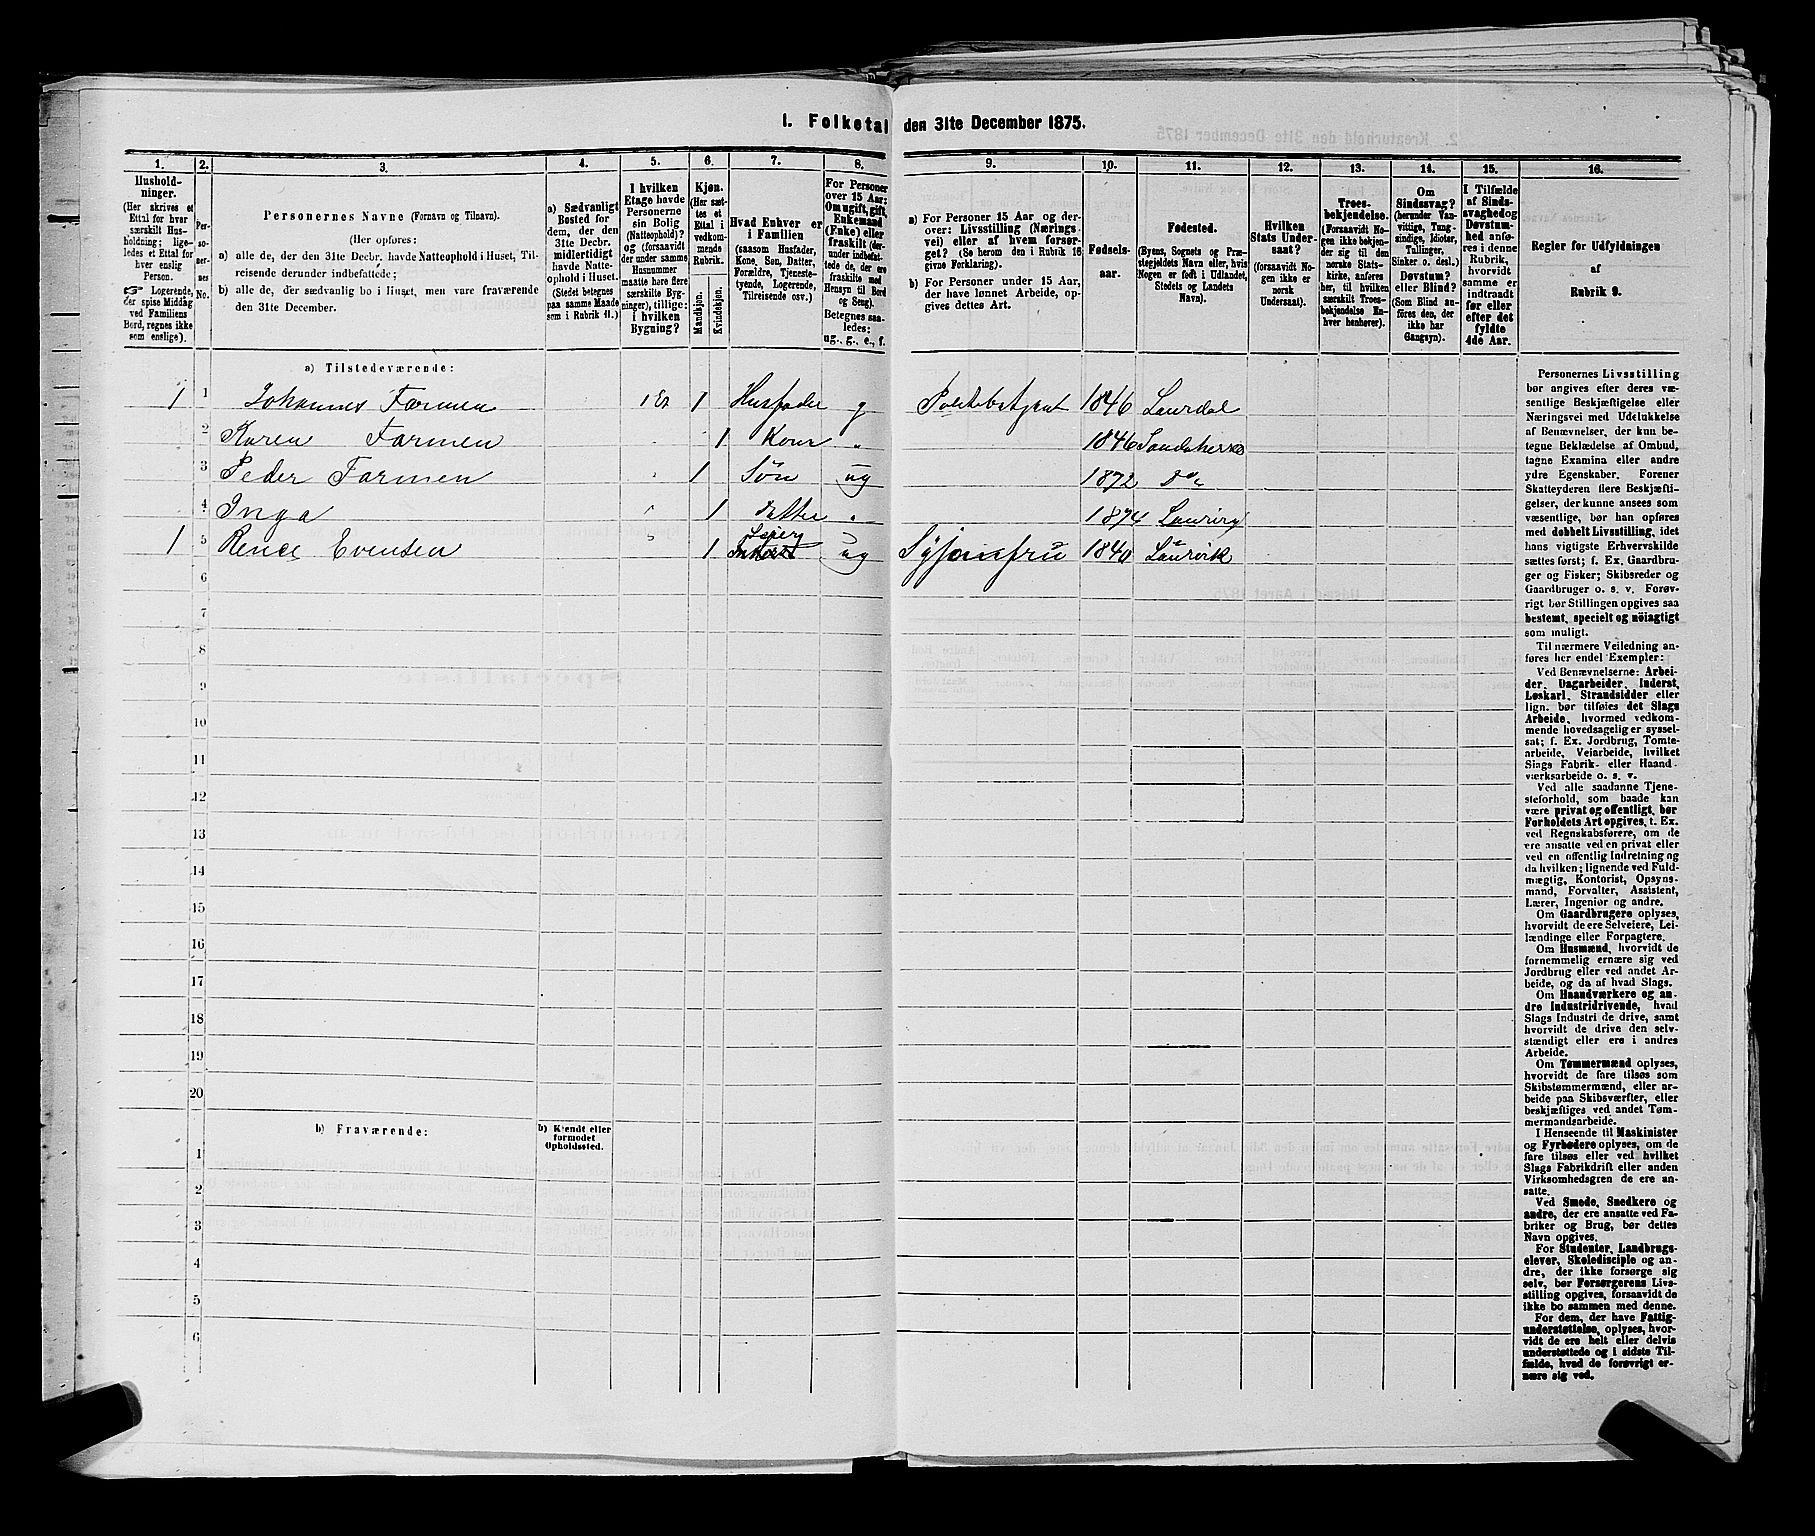 1. Folketal den 31te December 1875.
1.
2.
3.
4.
5.
6.
7.
8.
9.
10.
11.
12.
13.
14.
15.
16.
Hushold-
ninger.
(Her skrives et
Ettal for hver
særskilt Hus-
holdning; lige-
ledes et Ettal for
hver enslig
Person.
☞ Logerende,
der spise Middag
ved Familiens
Bord, regnes ikke
som enslige).
Per-
so-
ner-
nes
No.
Personernes Navne (Fornavn og Tilnavn).
(Her opføres:
a) alle de, der den 31te Decbr. havde Natteophold i Huset, Til-
reisende derunder indbefattede;
b) alle de, der sædvanlig bo i Huset, men vare fraværende
den 31te December.
a) Sædvanligt
Bosted for
dem, der den
31te Decbr.
midlertidigt
havde Natte-
ophold i Huset.
(Stedet betegnes
paa samme Maade
som i Rubrik 11.)
I hvilken
Etage havde
Personerne
sin Bolig
(Natteophold)?
og (forsaavidt
der under samme
Husnummer
maatte høre flere
særskilte Byg-
ninger), tillige:
i hvilken
Bygning?
Kjøn.
(Her sæt-
tes et
Ettal i
vedkom-
mende
Rubrik.
Mandkjøn.
Kvindekjøn.
Hvad Enhver er
i Familien
(saasom Husfader,
Kone, Søn, Datter,
Forældre, Tjeneste-
tyende, Logerende,
Tilreisende osv.)
For Personer
over 15 Aar:
Om ugift, gift,
Enkemand
(Enke) eller
fraskilt (der-
under indbefat-
tede de, der ere
fraskilte med
Hensyn til Bord
og Seng).
Betegnes saa-
ledes:
ug., g., e., f.
a) For Personer 15 Aar og der-
over: Livsstilling (Nærings-
vei) eller af hvem forsør-
get? (Se herom den i Rubrik 16
givne Forklaring).
b) For Personer under 15 Aar,
der have lønnet Arbeide, op-
gives dettes Art.
Fødsels-
aar.
Fødested.
(Byens, Sognets og Præ-
stegjeldets Navn eller, hvis
Nogen er født i Udlandet,
Stedets og Landets
Navn).
Hvilken
Stats Under-
saat?
(forsaavidt No-
gen ikke er
norsk
Undersaat).
Troes-
bekjendelse.
(Forsaavidt No-
gen ikke bekjen-
der sig til den
norske Stats-
kirke, anføres
her, til hvilken
særskilt Troes-
bekjendelse En-
hver henhører).
Om
Sindssvag?
(herunder Van-
vittige, Tung-
sindige, Idioter,
Tullinger,
Sinker o. desl.)
Døvstum?
eller Blind?
(Som Blind an-
føres den, der
ikke har
Gangsyn).
I Tilfælde
af Sinds-
svaghed og
Døvstum-
hed anfø-
res i denne
Rubrik,
hvorvidt
samme er
indtraadt
før eller
efter det
fyldte
4de Aar.
Regler for Udfyldningen
af
Rubrik 9.
a) Tilstedeværende:
1 1 Johannes Farmen 1 Et 1 Husfader g Politibetjent 1846 Laurdal
2 Karen Farmen 1 Kone „ 1846
3 Peder Farmen 1 Søn ug 1872 Do
4 Inga 1 Datter „ 1874
1 5 Evensen Logerr 1 ug Syjomfru 1840 Laurvik
6
7
8
9
10
11
12
13
14
15
16
17
18
19
20
b) Fraværende:
b) Kjendt eller
formodet
Opholdssted.
1
2
3
4
5
6
Personernes Livsstilling
bør angives efter deres væ-
sentlige Beskjæftigelse eller
Næringsvei med Udelukkelse
af Benævnelser, der kun be-
tegne Beklædelse af Ombud,
tagne Examina eller andre
ydre Egenskaber. Forener
Skatteyderen flere Beskjæfti-
gelser, der kunne ansees som
væsentlige, bør han opføres
med dobbelt Livsstilling, idet
hans vigtigste Erhvervskilde
sættes først; f. Ex. Gaardbru-
ger og Fisker; Skibsreder og
Gaardbruger o. s. v. Forøv-
rigt bør Stillingen opgives saa
bestemt, specielt og nöiagtigt
som muligt.
Til nærmere Veiledning an-
føres her endel Exempler:
Ved Benævnelserne: Arbei-
der, Dagarbeider, Inderst,
Løskarl, Strandsidder eller
lign. bør tilføies det Slags
Arbeide, hvormed vedkom-
mende hovedsagelig er syssel-
sat; f. Ex. Jordbrug, Tomte-
arbeide, Veiarbeide, hvilket
Slags Fabrik- eller Haand-
værksarbeide o. s. v.
Ved alle saadanne Tjene-
steforhold, som baade kan
være privat og offentligt, bør
Forholdets Art opgives, t. Ex.
ved Regnskabsførere, om de
ere ansatte ved en privat eller
ved en offentlig Indretning og
da hvilken; lignende ved Fuld-
mægtig, Kontorist, Opsyns-
mand, Forvalter, Assistent,
Lærer, Ingeniør og andre.
Om Gaardbrugere oplyses,
hvorvidt de ere Selveiere, Lei-
lændinge eller Forpagtere.
Om Husmænd, hvorvidt de
fornemmelig ernære sig ved
Jordbrug eller ved andet Ar-
beide, og da af hvad Slags.
Om Haandværkere og an-
dre industridrivende, hvad
Slags Industri de drive, samt
hvorvidt de drive den selv-
stændigt eller ere i andres
Arbeide.
Om Tømmermænd oplyses,
hvorvidt de fare tilsøs som
Skibstømmermænd, eller ar-
beide paa Skibsværfter, eller
beskjæftiges ved andet Tøm-
mermandsarbeide.
I Henseende til Maskinister
og Fyrbødere oplyses, om de
fare tilsøs eller ved hvilket
Slags Fabrikdrift eller anden
Virksomhedsgren de ere an-
satte.
Ved Smede, Snedkere og
andre, der ere ansatte ved Fa-
briker og Brug, bør dettes
Navn opgives.
For Studenter, Landbrugs-
elever, Skoledisciple og an-
dre, der ikke forsørge sig
selv, bør Forsørgerens Livs-
stilling opgives, forsaavidt de
ikke bo sammen med denne.
For dem, der have Fattig-
understøttelse, oplyses, hvor-
vidt de ere helt eller delvis
understøttede og i sidste Til-
fælde, hvad de forøvrigt er-
nære sig ved.